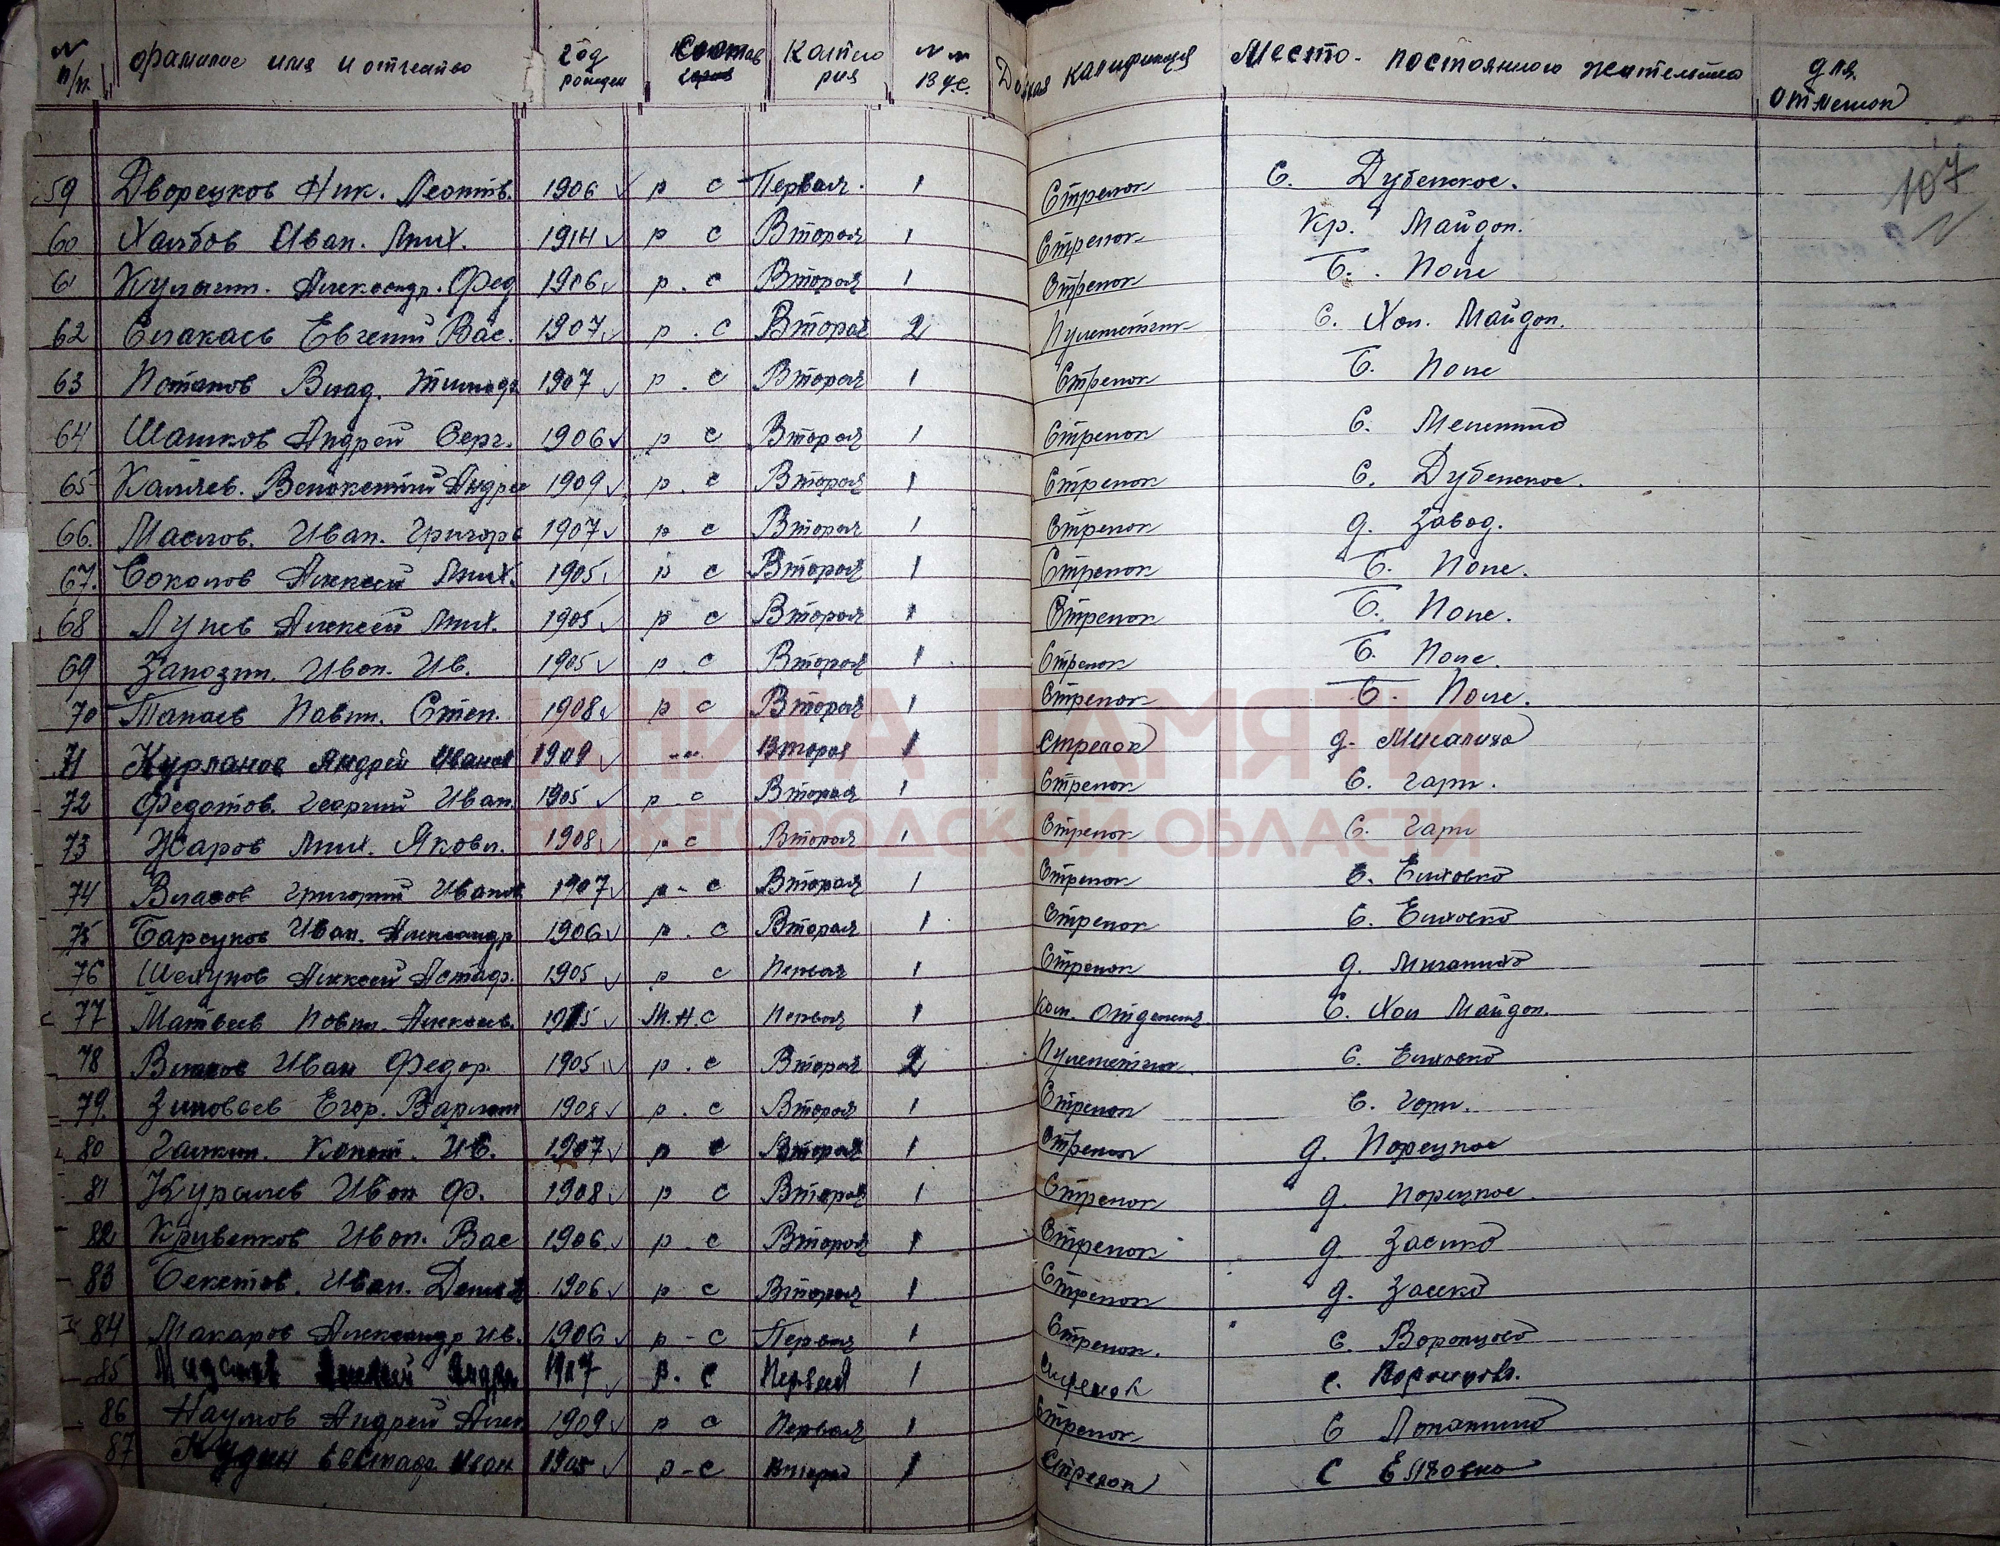 № п/п. Фамилие имя и отчество Год рожден Состав Категория №№ ВУС. Должная калификация Место постоянного жательства для отметок
107
59 Дворецков Ник. Леонтв. 1906 р с Первая. 1 Стрелок с. Дубенское.
60 Иван. Мих. 1914 р с Вторая 1 Стрелок Кр. Майдан.
61 Александр. Фед 1906 р. с Вторая 1 Стрелок Б. Поле
62 Евгений Вас. 1907 р. с Вторая 2 Пулеметчик с. Хол. Майдан.
63 Потапов Влад. 1907 р. с Вторая 1 Стрелок Б. Поле
64 Шашков Андрей Серг. 1906 р с Вторая 1 Стрелок с.
65 Каляев. Андрее 1909 р. с Вторая 1 Стрелок с. Дубенское.
66. Маслов. Иван. Григорь 1907 р с Вторая 1 Стрелок д. Завод.
67. Соколов Алексей Мих. 1905 р с Вторая 1 Стрелок Б. Поле.
68 Лунев Алексей Мих. 1905 р с Вторая 1 Стрелок Б. Поле.
69 Иван. Ив. 1905 р. с Вторая 1 Стрелок Б. Поле.
70 Танаев Павел. Степ. 1908 р с Вторая 1 Стрелок Б. Поле.
71 Курланов Андрей Иванов 1909 -"- Вторая 1 Стрелок д.
72 Федотов. Георгий Иван. 1905 р-с Вторая 1 Стрелок с. Гари.
73 Жаров Мих. Яковл. 1908 р с Вторая 1 Стрелок с. Гари
74 Власов Григорий Иванов 1907 р-с Вторая 1 Стрелок с. Елховко
75 Барсуков Иван. Александр 1906 р. с Вторая 1 Стрелок с. Елховко
76 Шелунов Алексей Астаф. 1905 р с Первая 1 Стрелок д.
77 Матвеев Павел. Алексеев. М.Н.С Первая 1 Ком. Отделения с. Хол Майдан.
78 Иван Федор. 1905 р. с Вторая 2 Пулеметчик с. Елховко
79. Зиновьев Егор. Варлам 1908 р. с Вторая 1 Стрелок с. Гари.
80 Галкин. Ив. 1907 р с Вторая 1 Стрелок д. Порецкое
81 Иван Ф. 1908 р с Вторая 1 Стрелок д. Порецкое.
82 Кривенков Иван. Вас 1906 р. с Вторая 1 Стрелок д. Засеко
83 Бекетов. Иван. 1906 р. с Вторая 1 Стрелок д. Засеко
84 Макаров Александр Ив. 1906 р - с Первая 1 Стрелок. с. Воронцово
85 1907 р. с Первая 1 Стрелок с.
86 Наумов Андрей Алек 1909 р с Первая 1 Стрелок с Лопатино
87 Кудин Евстафе Иван 1905 р-с Вторая 1 Стрелок с Елховка
КНИГА ПАМЯТИ
НИЖЕГОРОДСКОЙ ОБЛАСТИ